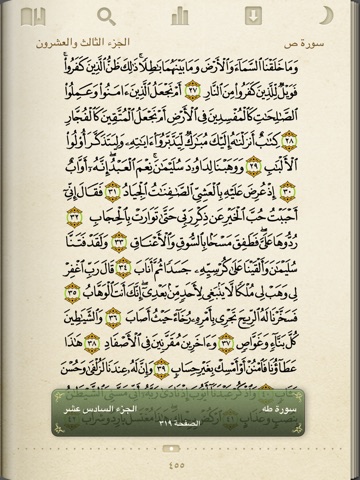 سورة ص
الجزء الثالث والعشرون
وَمَا خَلَقْنَا ٱلسَّمَآءَ وَٱلْأَرْضَ وَمَا بَيْنَهُمَا بَٰطِلًا ذَٰلِكَ ظَنُّ ٱلَّذِينَ كَفَرُوا۟
فَوَيْلٌ لِّلَّذِينَ كَفَرُوا۟ مِنَ ٱلنَّارِ ٢٧ أَمْ نَجْعَلُ ٱلَّذِينَ ءَامَنُوا۟ وَعَمِلُوا۟
ٱلصَّٰلِحَٰتِ كَٱلْمُفْسِدِينَ فِى ٱلْأَرْضِ أَمْ نَجْعَلُ ٱلْمُتَّقِينَ كَٱلْفُجَّارِ
٢٨ كِتَٰبٌ أَنزَلْنَٰهُ إِلَيْكَ مُبَٰرَكٌ لِّيَدَّبَّرُوٓا۟ ءَايَٰتِهِۦ وَلِيَتَذَكَّرَ أُو۟لُوا۟
ٱلْأَلْبَٰبِ ٢٩ وَوَهَبْنَا لِدَاوُۥدَ سُلَيْمَٰنَ نِعْمَ ٱلْعَبْدُ إِنَّهُۥٓ أَوَّابٌ
٣٠ إِذْ عُرِضَ عَلَيْهِ بِٱلْعَشِىِّ ٱلصَّٰفِنَٰتُ ٱلْجِيَادُ ٣١ فَقَالَ إِنِّىٓ
أَحْبَبْتُ حُبَّ ٱلْخَيْرِ عَن ذِكْرِ رَبِّى حَتَّىٰ تَوَارَتْ بِٱلْحِجَابِ ٣٢
رُدُّوهَا عَلَىَّ فَطَفِقَ مَسْحًۢا بِٱلسُّوقِ وَٱلْأَعْنَاقِ ٣٣ وَلَقَدْ فَتَنَّا
سُلَيْمَٰنَ وَأَلْقَيْنَا عَلَىٰ كُرْسِيِّهِۦ جَسَدًا ثُمَّ أَنَابَ ٣٤ قَالَ رَبِّ ٱغْفِرْ
لِى وَهَبْ لِى مُلْكًا لَّا يَنۢبَغِى لِأَحَدٍ مِّنۢ بَعْدِىٓ إِنَّكَ أَنتَ ٱلْوَهَّابُ ٣٥
فَسَخَّرْنَا لَهُ ٱلرِّيحَ تَجْرِى بِأَمْرِهِۦ رُخَآءً حَيْثُ أَصَابَ ٣٦ وَٱلشَّيَٰطِينَ
كُلَّ بَنَّآءٍ وَغَوَّاصٍ ٣٧ وَءَاخَرِينَ مُقَرَّنِينَ فِى ٱلْأَصْفَادِ ٣٨ هَٰذَا
عَطَآؤُنَا فَٱمْنُنْ أَوْ أَمْسِكْ بِغَيْرِ حِسَابٍ ٣٩ وَإِنَّ لَهُۥ عِندَنَا لَزُلْفَىٰ وَحُسْنَ
سورة طه
الجزء السادس عشر
الصفحة ٣١٩
٤٥٥